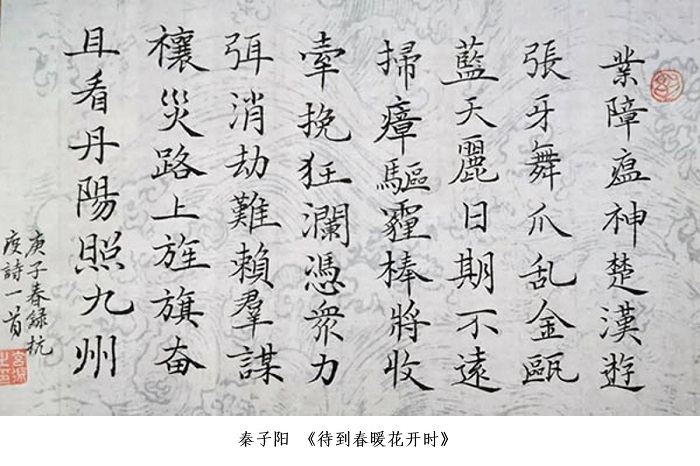 業障瘟神楚漢遊
張牙舞爪乱金甌
藍天麗日期不遠
掃瘴驅霾棒將收
牽挽狂瀾憑衆力
弭消劫難賴羣謀
禳災路上旌旗奋
且看丹陽照九州
庚子春録抗
疫詩一首
秦子阳 《待到春暖花开时》